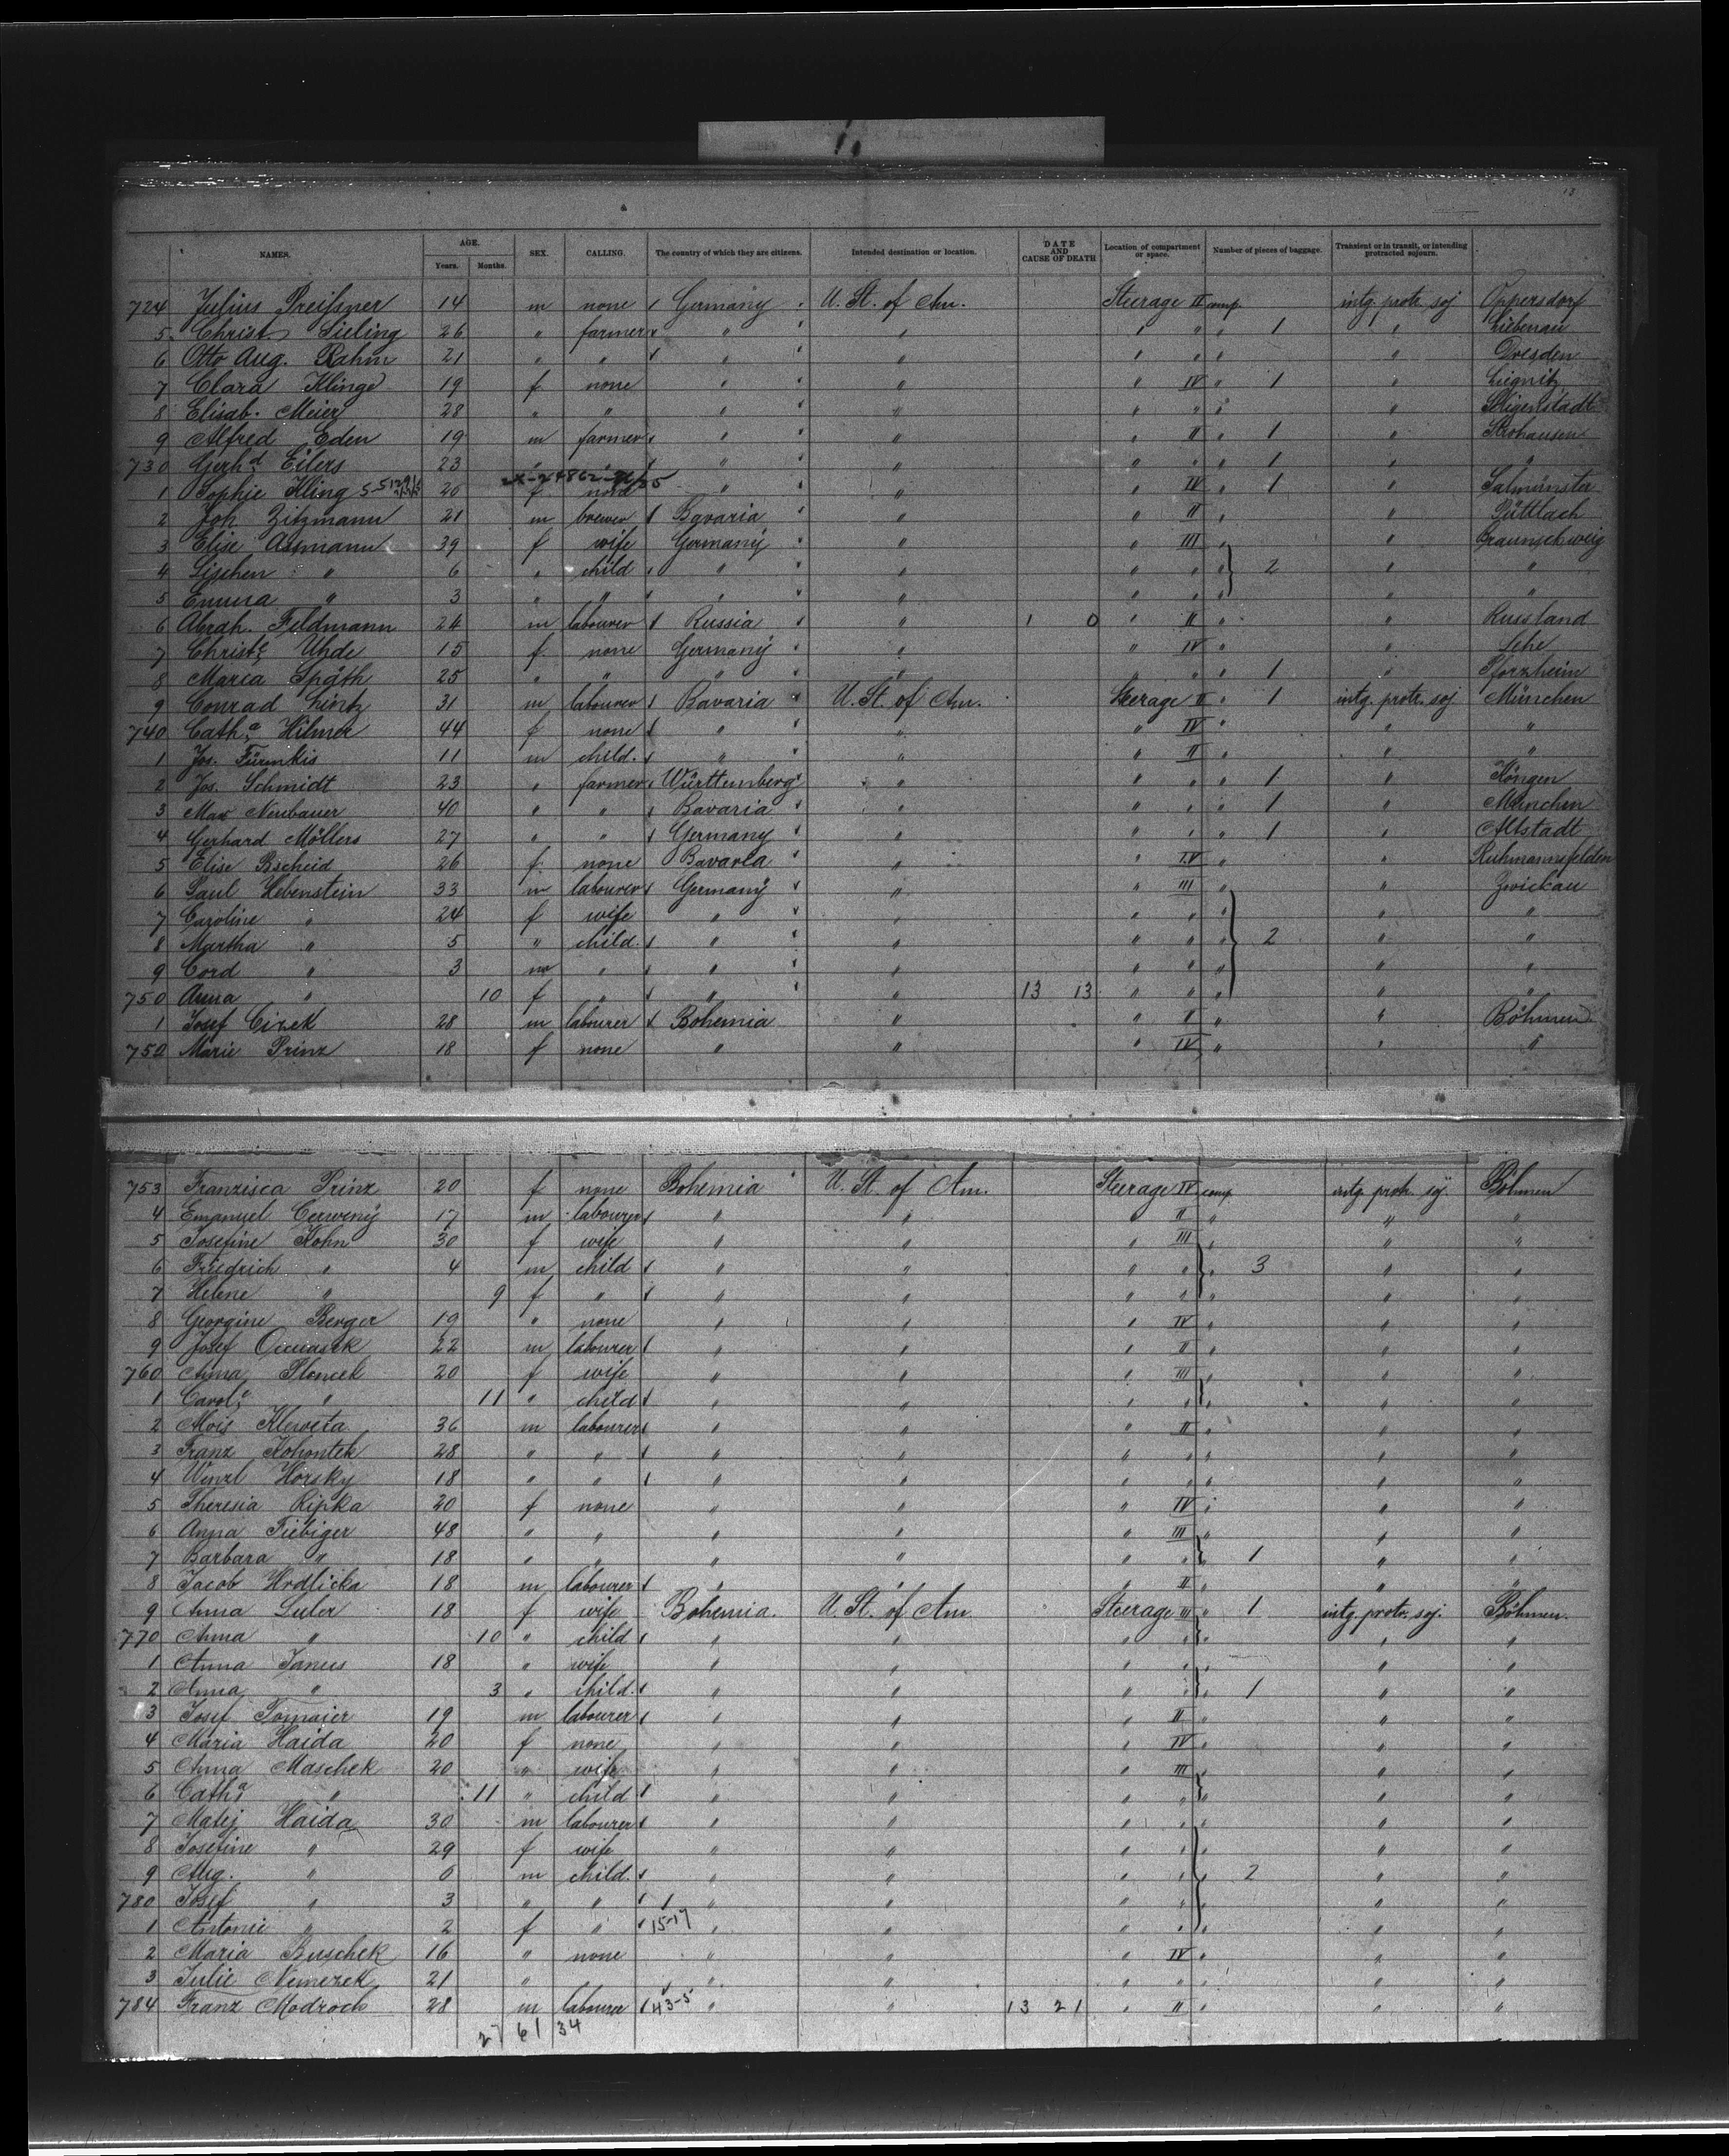 13
NAMES. AGE. Years. Months. SEX. CALLING. The country of which they are citizens. Intended destination or location. DATE AND CAUSE OF DEATH Location of compartment or space. Number of pieces of baggage. Transient or in transit, or intending protracted sojourn.
724 Julius Preißner 14 m none Germany U. St. of Am. Steerage II comp. intg. protr. soj Oppersdorf
5 Christ. Sieling 26 " farmer " " " " " 1 " Liebenau
6 Otto Aug. Rahm 21 " " " " " " " " Dresden
7 Clara Klinge 19 f none " " " IV " 1 " Liegnitz
8 Elisab. Meier 28 " " " " " " " "
9 Alfred Eden 19 m farmer " " " II " 1 " Strohausen
730 Gerhd. Eilers 23 " " " " " " " 1 " "
1 Sophie Kling 20 f none " " " IV " 1 " Salmünster
2 Joh. Zitzmann 21 m brewer Bavaria " " II " " Püttlach
3 Elise Assmann 39 f wife Germany " " III " " Braunschweig
4 Lischen " 6 " child " " " " " 2 " "
5 Emma " 3 " " " " " " " " "
6 Abrah. Feldmann 24 m labourer Russia " 1 0 " II " " Russland
7 Christe. Uhde 15 f none Germany " " IV " " Lehe
8 Maria Späth 25 " " " " " " " 1 " Pforzheim
9 Conrad 31 m labourer Bavaria U. St. of Am. Steerage II " 1 intg. protr. soj München
740 Catha. Hilmer 44 f none " " " IV " " "
1 Jos. Fürnkis 11 m child. " " " II " " "
2 Jos. Schmidt 23 " farmer Württemberg " " " " 1 " Köngen
3 Max Neubauer 40 " " Bavaria " " " " 1 " München
4 Gerhard Möllers 27 " " Germany " " " " 1 " Altstadt
5 Elise Bscheid 26 f. none Bavaria " " IV " " Ruhmannsfelden
6 Paul Hebenstein 33 m labourer Germany " " III " " Zwickau
7 Caroline " 24 f wife " " " " " " "
8 Martha " 5 " child. " " " " " 2 " "
9 Cord " 3 m " " " " " " " "
750 Anna " 10 f " " " 13 13 " " " " "
1 Josef Cizek 28 m labourer Bohemia " " II " " Böhmen
752 Marie Prinz 18 f none " " " IV " " "
753 Franzisca Prinz 20 f none Bohemia U. St. of Am. Steerage IV comp. intg. protr. soj. Böhmen
4 Emanuel Cerweny 17 m labourer " " " II " " "
5 Josefine Kohn 30 f wife " " " III " " "
6 Friedrich " 4 m child " " " " " 3 " "
7 Helene " 9 f " " " " " " " "
8 Georgine Berger 19 " none " " " IV " " "
9 Josef 22 m labourer " " " II " " "
760 Anna Sloncek 20 f wife " " " III " " "
1 Carole. " 11 " child " " " " " " "
2 Alois Kleweta 36 m labourer " " " II " " "
3 Franz Kohontek 28 " " " " " " " " "
4 Wenzl Horsky 18 " " " " " " " " "
5 Theresia Ripka 20 f none " " " IV " " "
6 Anna Fiebiger 48 " " " " " III " " "
7 Barbara " 18 " " " " " " " 1 " "
8 Jacob Hrdlicka 18 m labourer " " " II " " "
9 Anna Suler 18 f wife Bohemia. U. St. of Am. Steerage III " 1 intg. protr. soj. Böhmen.
770 Anna " 10 " child " " " " " " "
1 Anna Janus 18 " wife " " " " " " "
2 Anna " 3 " child. " " " " " 1 " "
3 Josef Tomaier 19 m labourer " " " II " " "
4 Maria Haida 20 f none " " " IV " " "
5 Anna Maschek 20 " wife " " " III " " "
6 Catha. " 11 " child " " " " " " "
7 Matej Haida 30 m labourer " " " " " " "
8 Josefine " 29 f wife " " " " " " "
9 Aug. " 6 m child. " " " " " 2 " "
780 Josef " 3 " " " " " " " " "
1 Antonie " 2 f " 15-17 " " " " " " "
2 Maria Buschek 16 " none " " " IV " " "
3 Julie Nemezek 21 " " " " " " " "
784 Franz Modroch 28 m labourer 43-5 " " 13 21 " II " " "
27 61 34